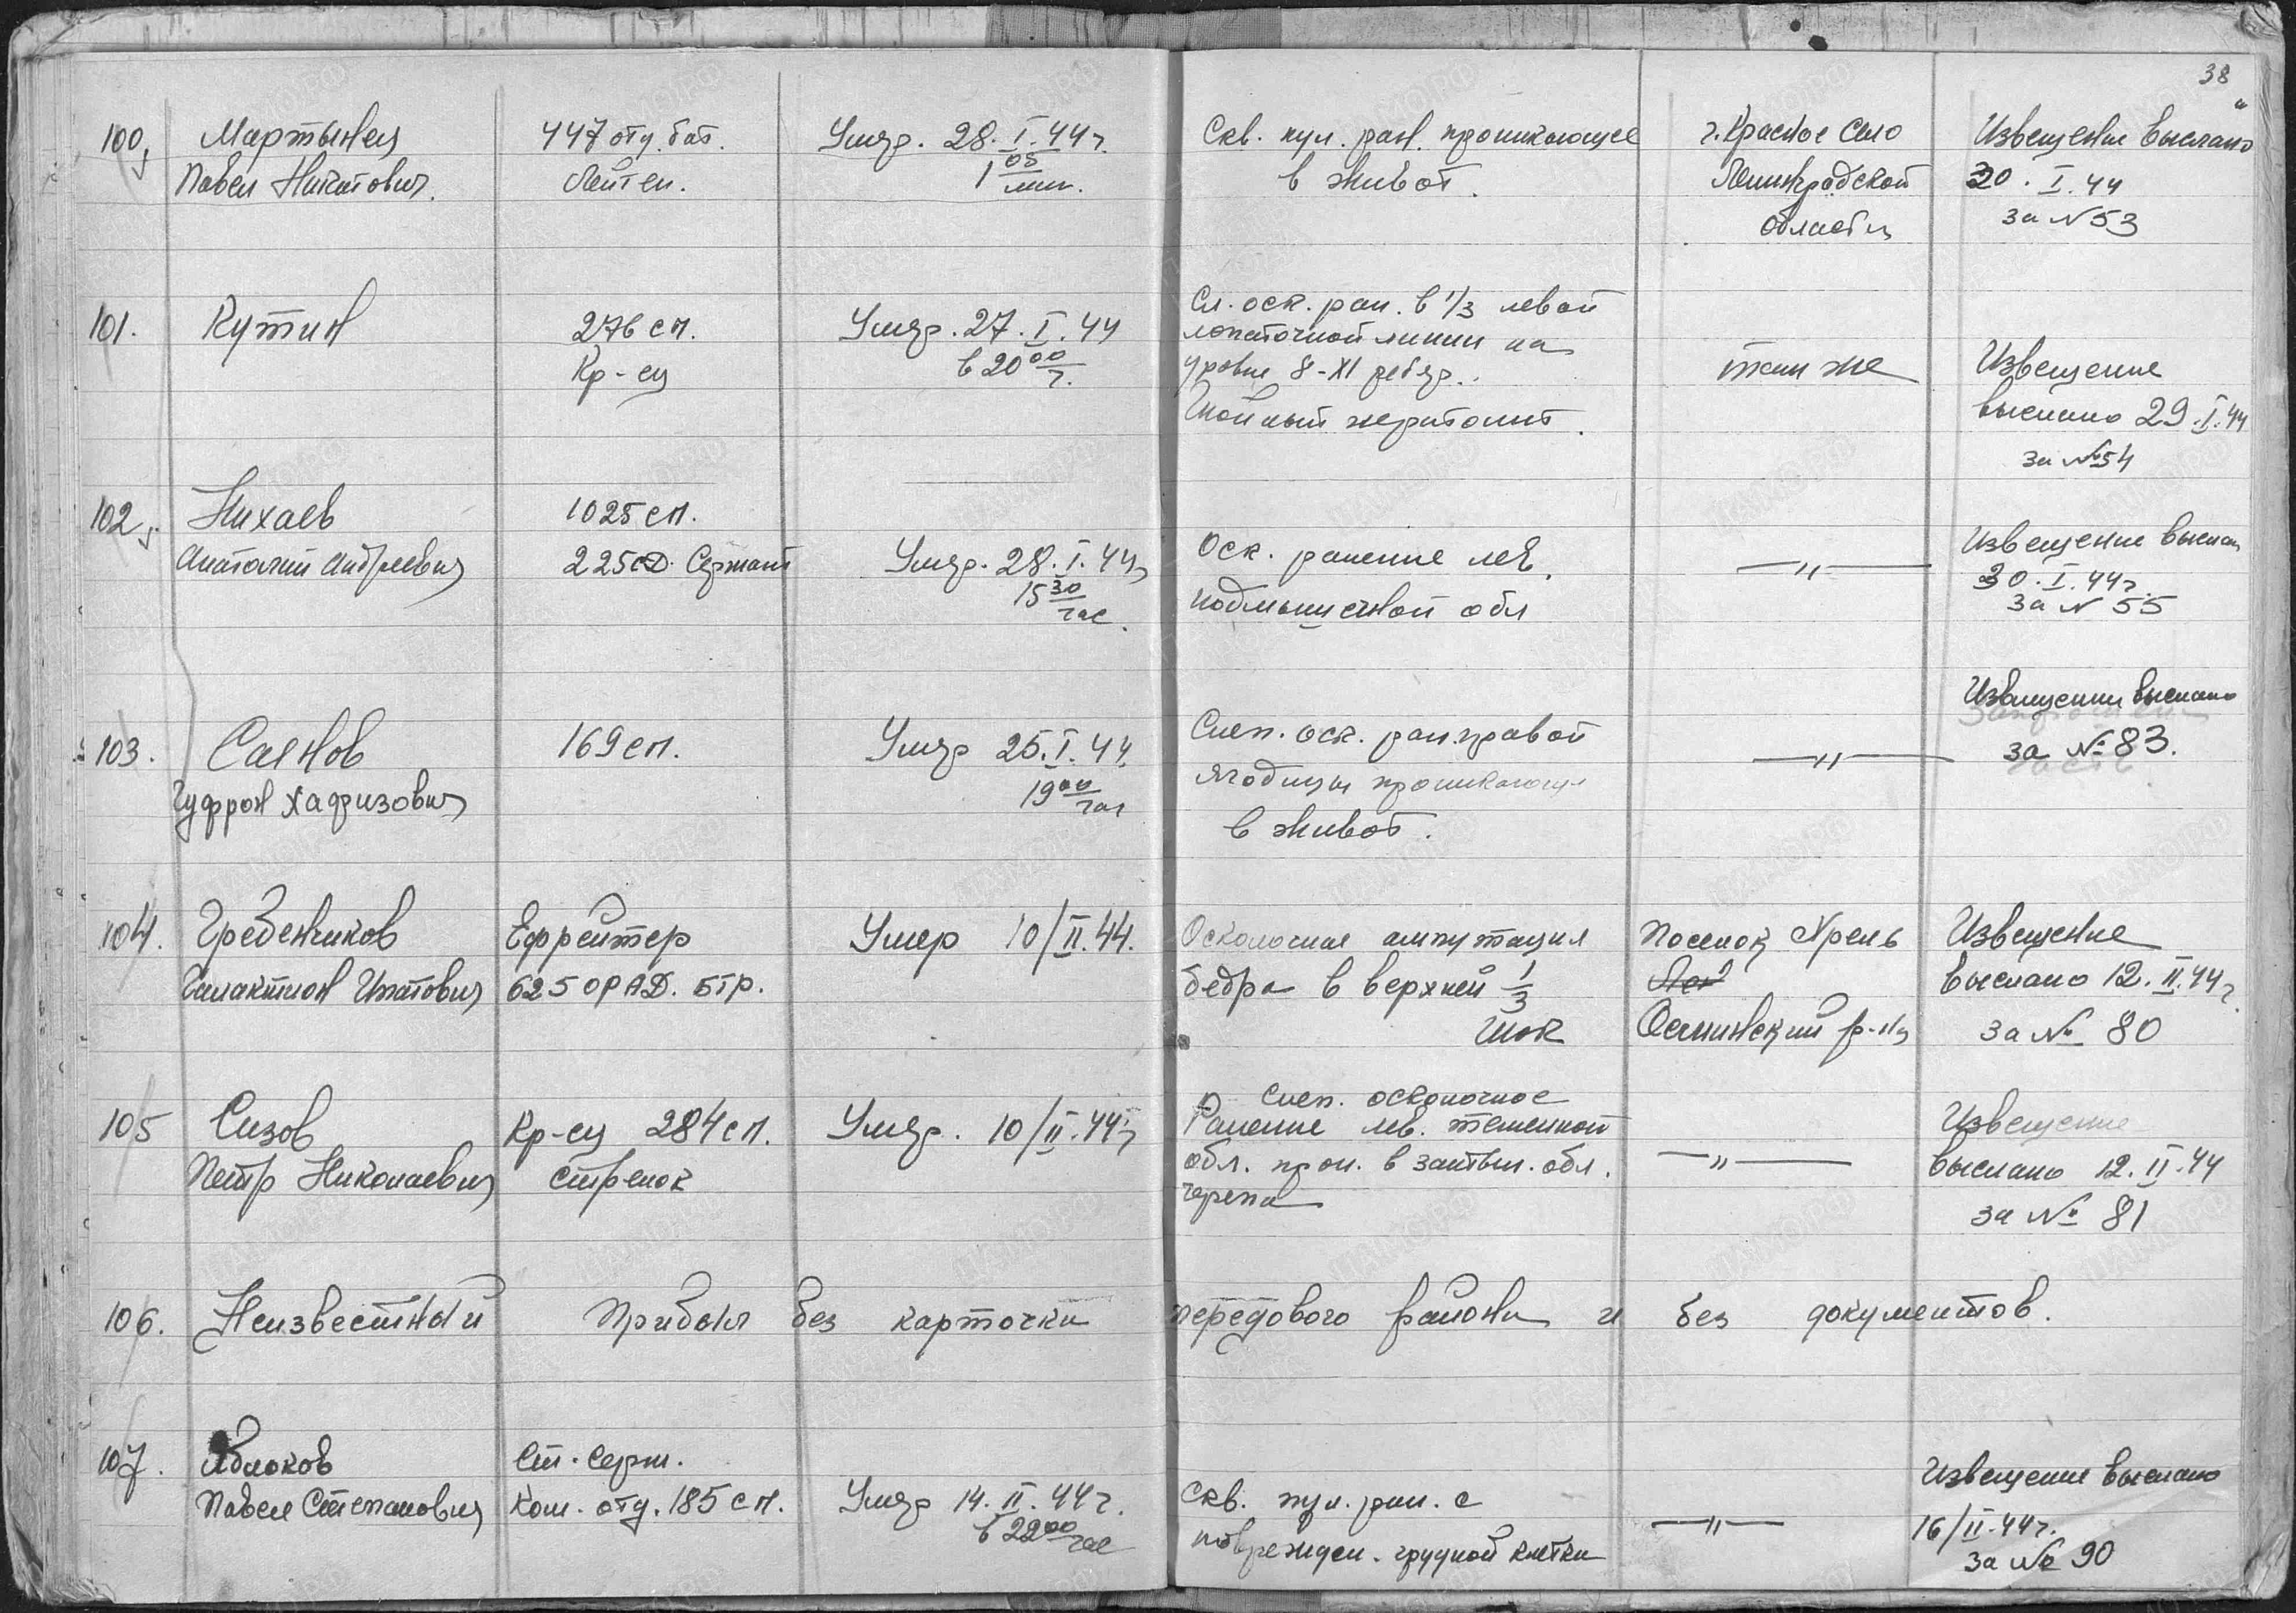 38
100,
Мартынец
Павел Никитович.
447 отд. бат.
Лейтен.
Умер. 28.I.44г.
1 05 мин.
Скв. пул. ран. проникающее
в живот.
г. Красное Село
Ленинградской
области
Извещение выслано
30.I.44
за N 53
101.
Кутин
276 сп.
Кр-ец
Умер. 27.I.44
в 20 00 ч.
Сл. оск. ран. в 1/3 левой
лопаточной линии на
уровне 8-XI ребер.
перитонит.
там же
Извещение
выслано 29.I.44
за №54
102
Михаев
Анатолий Андреевич
1025 сп.
225 сд. Сержант
Умер. 28.I.44г
15 30 час.
Оск. ранение лев.
подмышечной обл
—〃—
Извещение выслан
30.I.44г.
за N 55
103.
Саенов
Гуфрон Хафизович
169 сп.
Умер 25.I.44.
19 00 час
Слеп. оск. ран. правой
ягодицы проникающе
в живот.
—〃—
Извещении выслано
за № 83.
104.
Гребенчиков
Галактион Ипатович
Ефрейтер
625 ОРАД. БТР.
Умер 10/II.44.
Осколочная ампутация
бедра в верхней 1/3
Шок
Поселок Хрель
Осьминский р-н
Извещение
выслано 12.II.44г
за № 80
105
Сизов
Петр Николаевич
Кр-ец 284 сп.
стрелок
Умер. 10/II.44г
Слеп. осколочное
Ранение лев. теменной
обл. прон. в затыл. обл.
черепа
—〃—
Извещение
выслано 12.II.44
за № 81
106. Неизвестный Прибыл без карточки передового района и без документов.
107.
Яблоков
Павел Степанович
Ст. Серж.
Ком. отд. 185 сп.
Умер 14.II.44г.
в 22 00 час
Скв. пул. ран. с
поврежден. грудной клетки
—〃—
Извещение выслано
16/II-44г.
за № 90